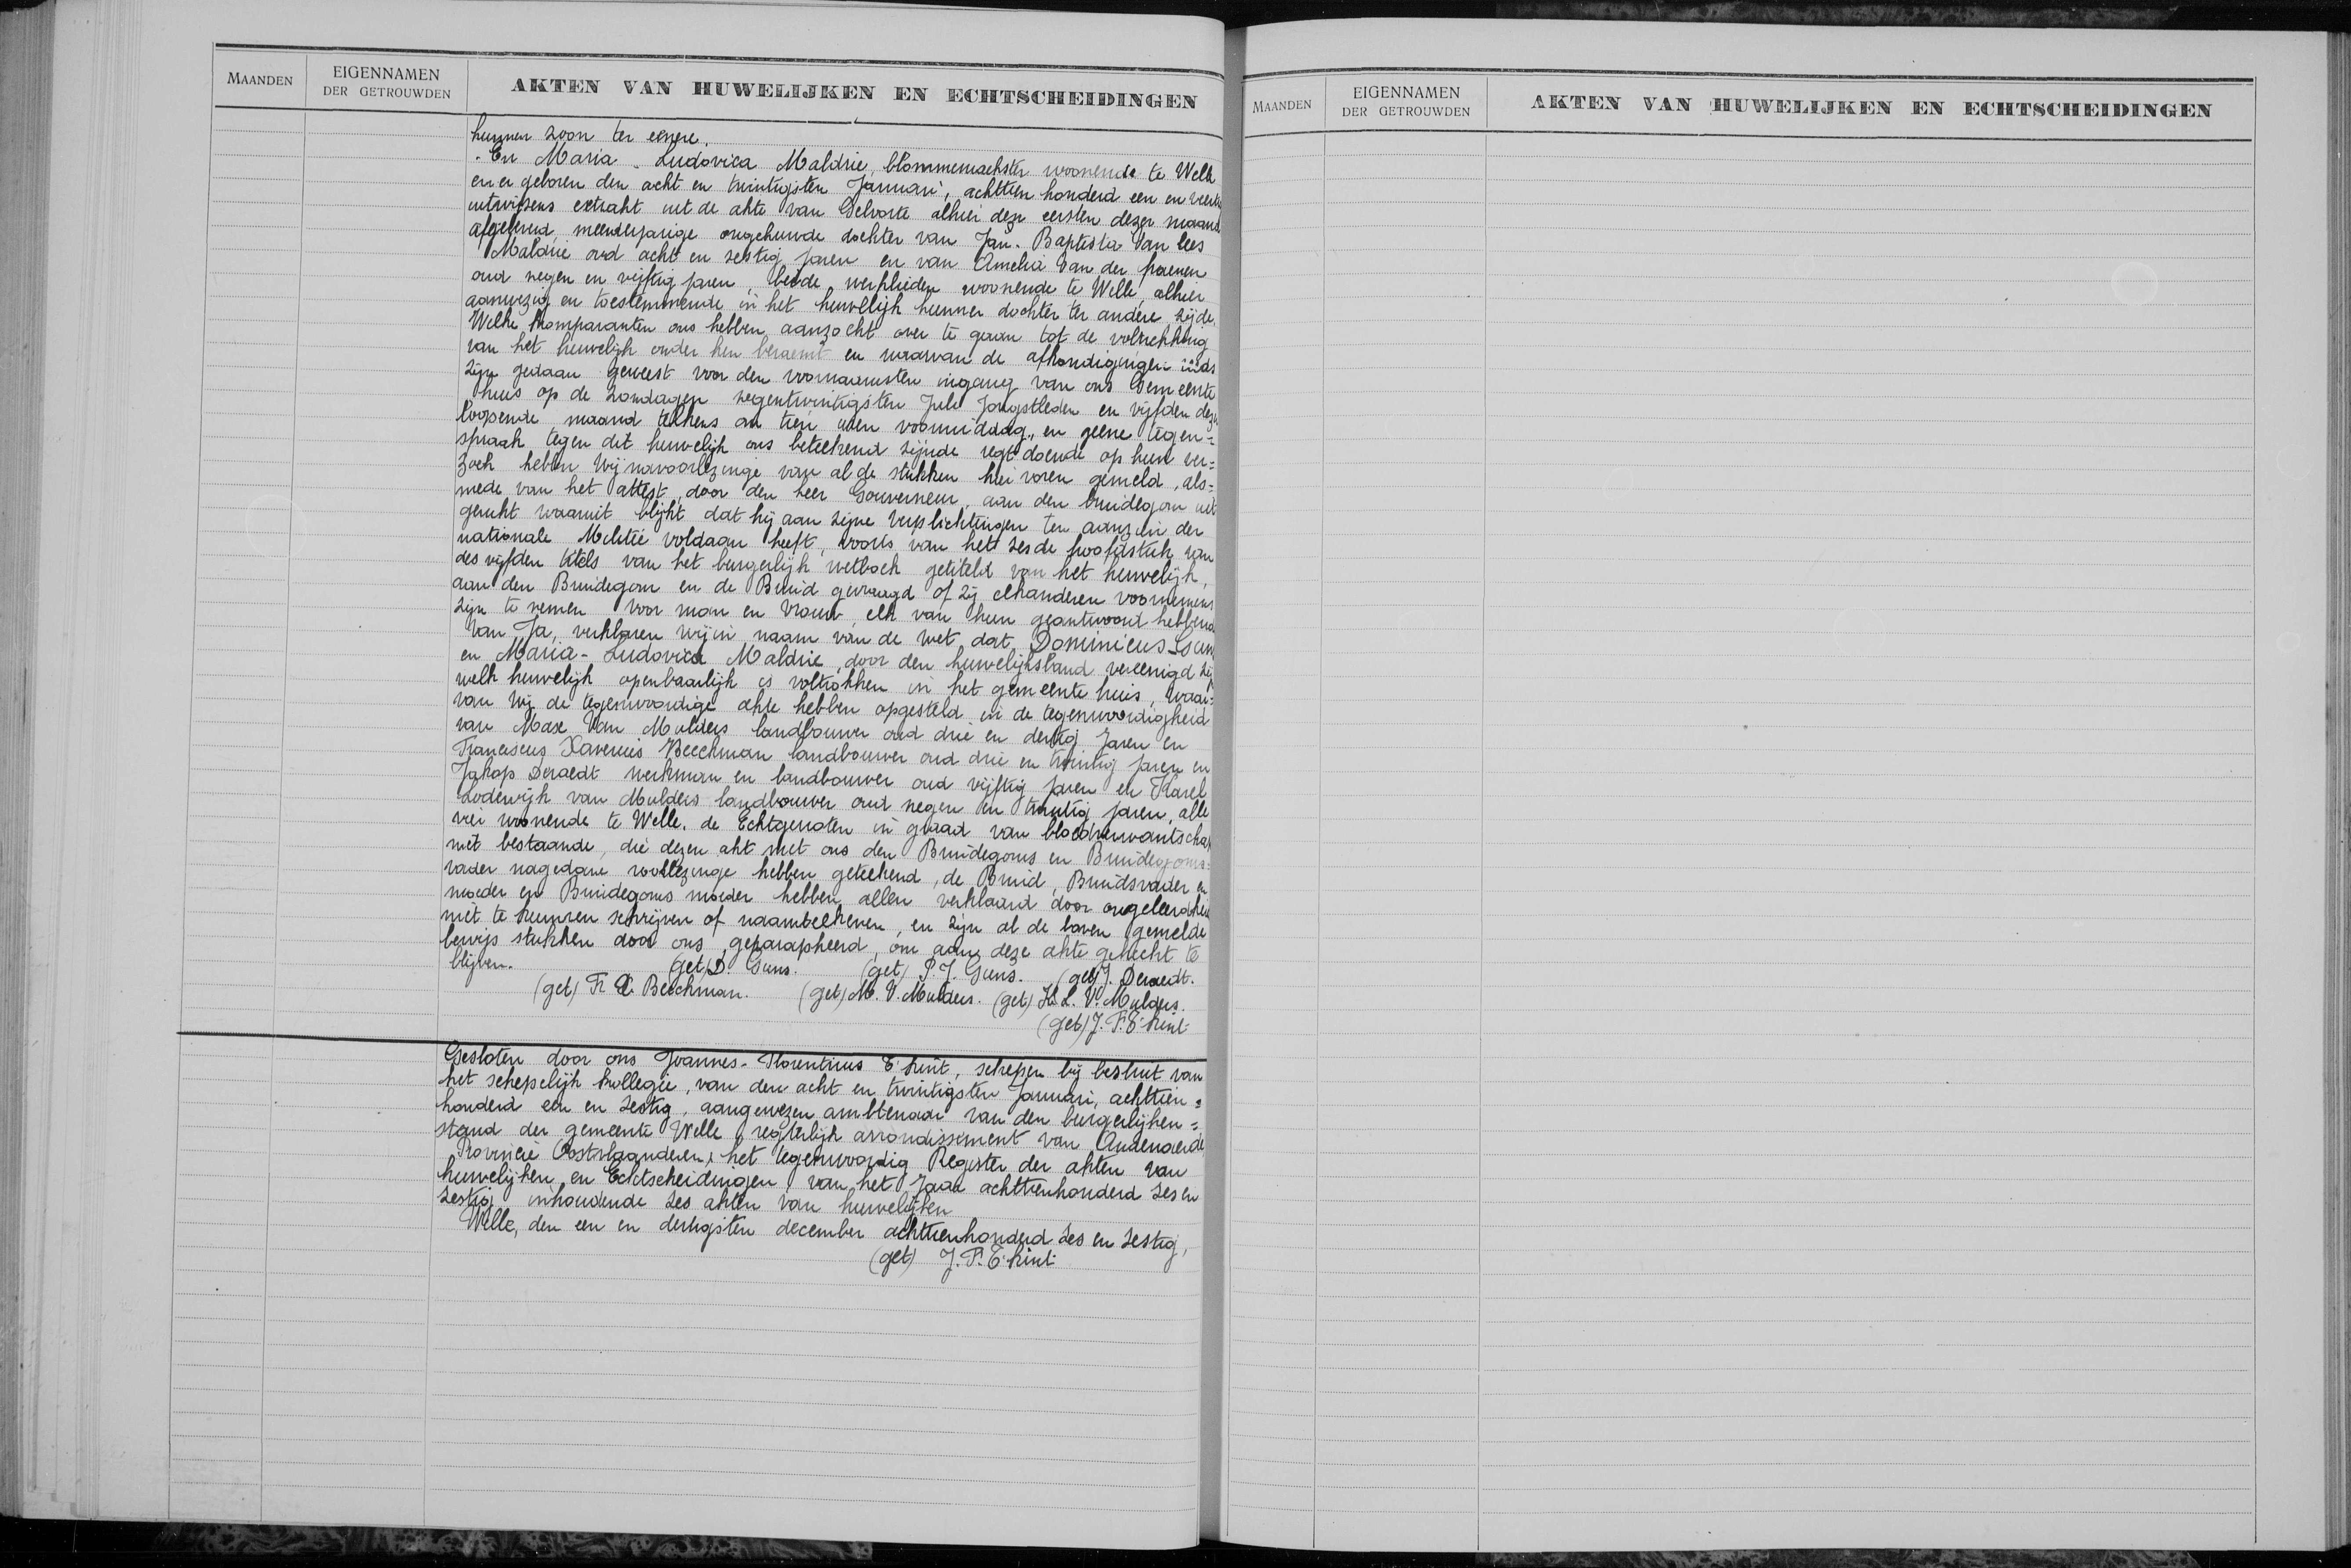 MAANDEN
EIGENNAMEN
DER GETROUWDEN
AKTEN VAN HUWELIJKEN EN ECHTSCHEIDINGEN
hunnen zoon ter eenre.
En Maria - Ludovica Maldrie, blommemaekster woonende te Welle
en er geboren den acht en twintigsten Januari, achttien honderd een en veertig
uitwijzens extrakt uit de akte van Gelvorte alhier den eersten dezer maand
afgeleverd, meerderjarige ongehuwde dochter van Jan-Baptista Van lees
Maldrie oud acht en zestig jaren en van Amelia Van der
oud negen en vijftig jaren, beide werklieden woonende te Welle, alhier
aanwezig en toestemmende in het huwelijk hunner dochter ter andere zijde,
Welke komparanten ons hebben aanzocht over te gaan tot de voltrekking
van het huwelijk onder hen beraemt en waarvan de afkondigingen
zijn gedaan geweest voor den voornaamsten ingang van ons Gemeente
huis op de zondagen negentwintigsten Juli Jongstleden en vijfden dezer
loopende maand telkens om tien uren voormiddag, en geene tegen=
spraak tegen dit huwelijk ons beteekend zijnde regt doende op hun ver=
zoek hebben Wij navoorlezinge van al de stukken hier voren gemeld, als=
mede van het attest, door den heer Gouverneur, aan den bruidegom uit
gereikt waaruit blijkt dat hij aan zijne verplichtingen ten aanzien der
nationale Militie voldaan heeft, voorts van het zesde hoofdstuk van
des vijfden titels van het burgerlijk wetboek getiteld van het huwelijk,
aan den Bruidegom en de Bruid gevraagd of zij elkanderen voornemens
zijn te nemen voor man en vrouw, elk van hun geantwoord hebbend
van Ja, verklaren wij in naam van de wet, dat Dominicus Guns
en Maria-Ludovica Maldrie, door den huwelijksband vereenigd zijn
welk huwelijk openbaarlijk is voltrokken in het gemeente huis, waar=
van Wij de tegenwoordige akte hebben opgesteld in de tegenwoordigheid
van Max Van Mulders landbouwer oud drie en dertig Jaren en
Franciscus Xaverius Beeckman landbouwer oud drie en twintig jaren en
Jakop Deraedt werkman en landbouwer oud vijftig jaren en Karel
Lodewijk van Mulders landbouwer oud negen en twintig jaren, alle
vier woonende te Welle, de Echtgenoten in graad van bloedverwantschap
niet bestaande, die dezen akt met ons den Bruidegoms en Bruidegoms-
vader nagedane voorlezinge hebben geteekend, de Bruid, Bruidsvader en
moeder en Bruidegoms moeder hebben allen verklaard door ongeleerdheid
niet te kunnen schrijven of naamteekenen, en zijn al de boven gemelde
bewijs stukken door ons geparapheerd, om aan deze akte gehecht te
blijven. (get) D. Guns. (get) P. J. Guns. (get) J. Deraedt.
(get) Fr X Beeckman. (get) M. V. Mulders. (get) K. L. V. Mulders.
(get) J. F. E'kint
Gesloten door ons Joannes-Florentinus E'kint, schepen bij besluit van
het schepelijk kollegie, van den acht en twintigsten Januari, achttien=
honderd een en zestig, aangewezen ambtenaar van den burgerlijken=
stand der gemeente Welle regterlijk arrondissement van Audenaerde
Provincie Oostvlaanderen, het tegenwoordig Register der akten van
huwelijken en Echtscheidingen van het Jaar achttienhonderd zes en
zestig inhoudende zes akten van huwelijken
Welle, den een en dertigsten december achttienhonderd zes en zestig,
(get) J. F. E'kint
MAANDEN
EIGENNAMEN
DER GETROUWDEN
AKTEN VAN HUWELIJKEN EN ECHTSCHEIDINGEN